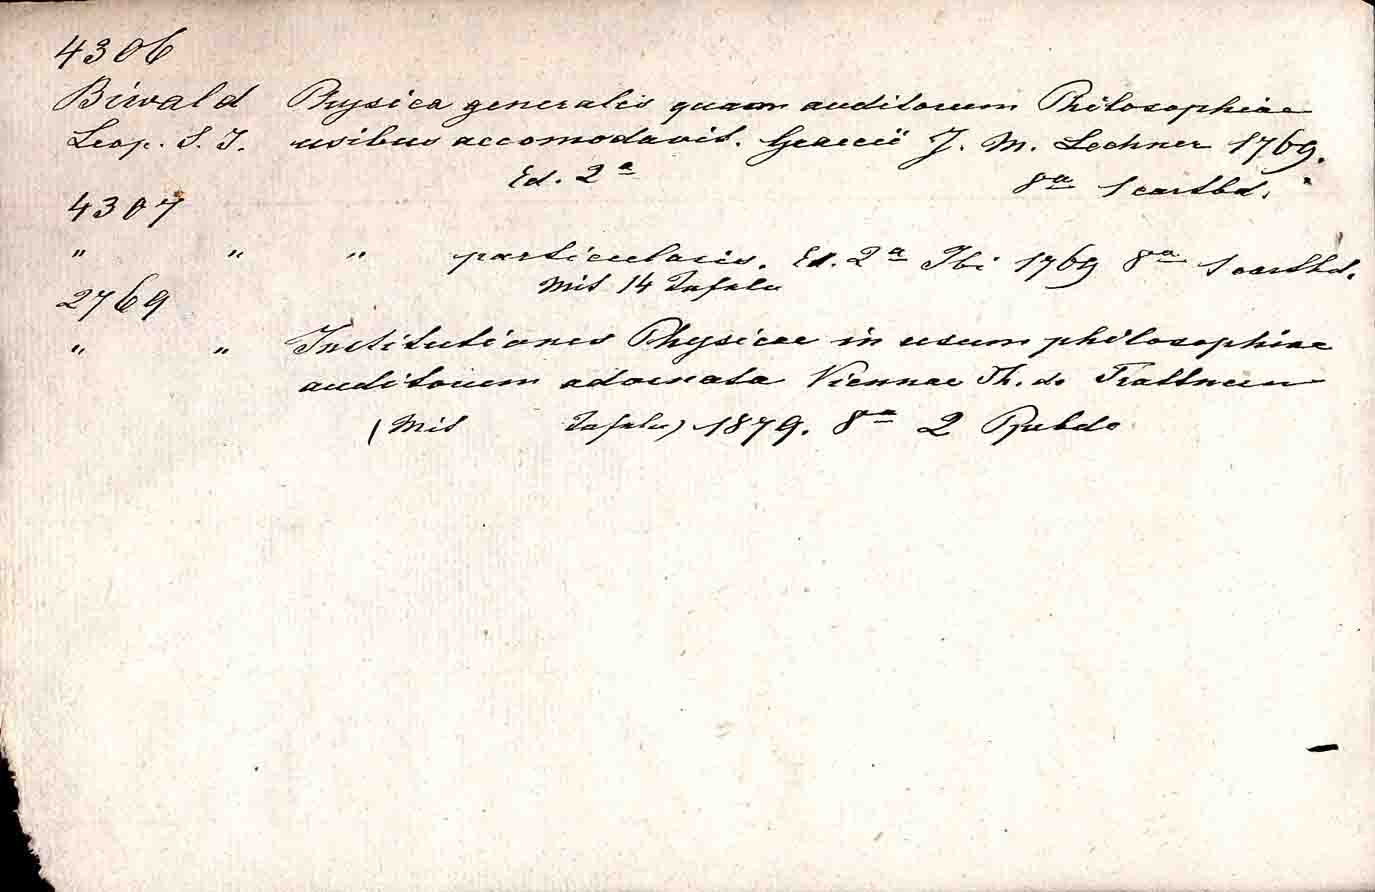 4306
Biwald Physica generalis quam auditorum Philosophiae
Leop. S. J. usibus accomodavit. Graecii J. M. Lechner 1769.
Ed. 2a 8a 1 cartbd.
4307
" " " particularis. Ed. 2a Ibi 1769 8a 1 cartbd.
Mit 14 Tafeln
2769
" " Institutiones Physicae in usum philosophiae
auditorum adornata Viennae Th. de Trattnern
(Mit Tafeln) 1879. 8a 2